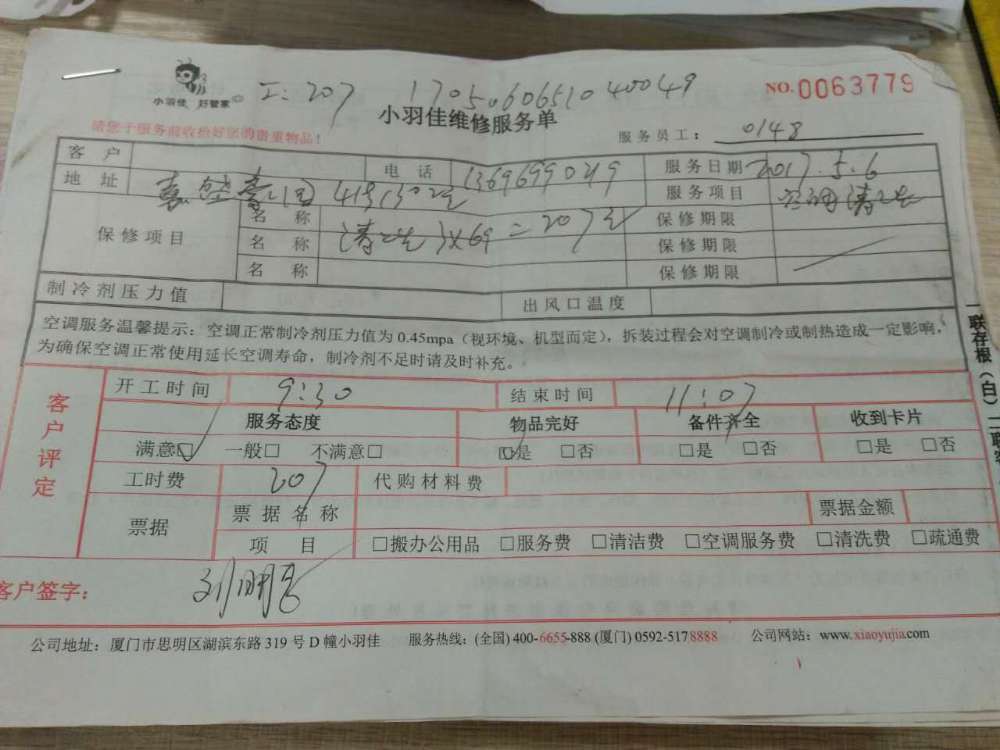 小羽佳 好管家
工:207 17050606510400049
NO.0063779
小羽佳维修服务单
请您于服务前收拾好您的贵重物品!
服务员工: 0148
客户 电话 13696990219 服务日期 2017.5.6
地址 413 服务项目 空调清洗
保修项目 名称 清洗 X69=207元 保修期限
名称 保修期限
名称 保修期限
制冷剂压力值 出风口温度
空调服务温馨提示:空调正常制冷剂压力值为0.45mpa(视环境、机型而定),拆装过程会对空调制冷或制热造成一定影响,
为确保空调正常使用延长空调寿命,制冷剂不足时请及时补充。
一联存根(白)二联客
客户评定
开工时间 9:30 结束时间 11:07
服务态度 物品完好 备件齐全 收到卡片
满意☑ 一般□ 不满意□ ☑是 □否 □是 □否 □是 □否
工时费 207 代购材料费
票据 票据名称 票据金额
项目 □搬办公用品 □服务费 □清洁费 □空调服务费 □清洗费 □疏通费
客户签字:
公司地址:厦门市思明区湖滨东路319号D幢小羽佳 服务热线:(全国)400-6655-888(厦门)0592-5178888 公司网站:www.xiaoyujia.com